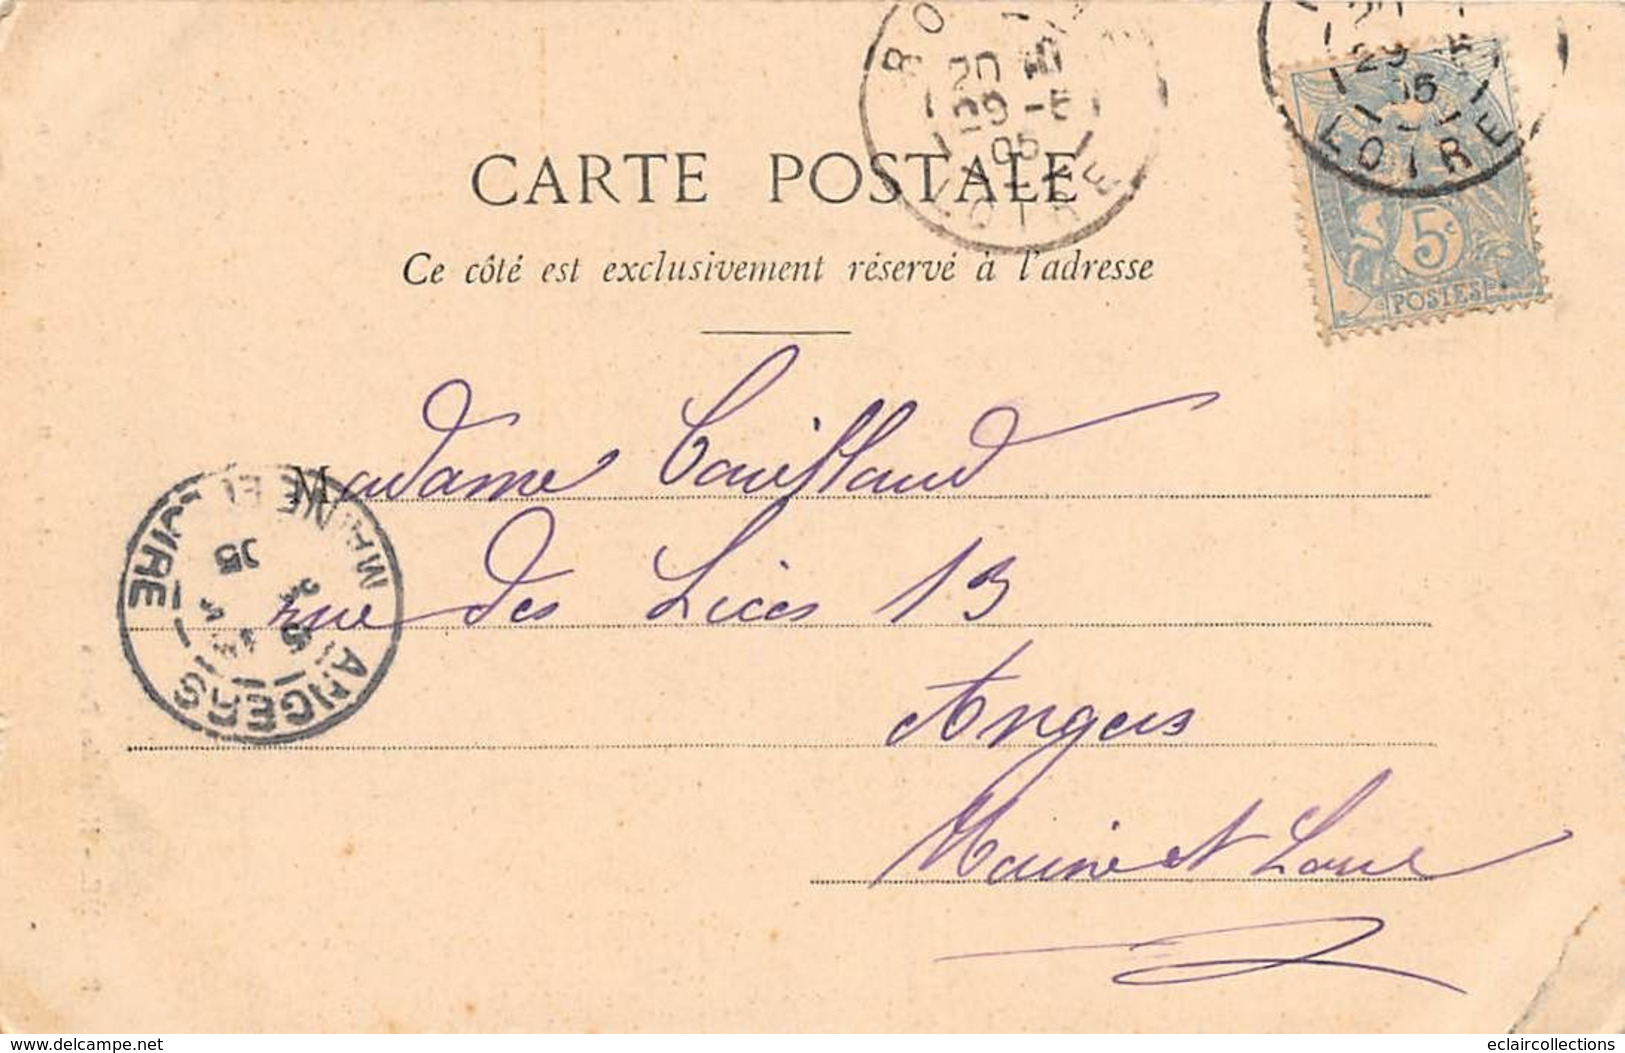 CARTE POSTALE
Ce côté est exclusivement réservé à l'adresse
RO
20
29 -5
05
LOIRE
29 5
05
LOIRE
5c
POSTES
Madame
rue des Lices 13
Angers
Maine et Loire
ANGERS
MAINE ET LOIRE
5
05
delcampe.net
eclaircollections